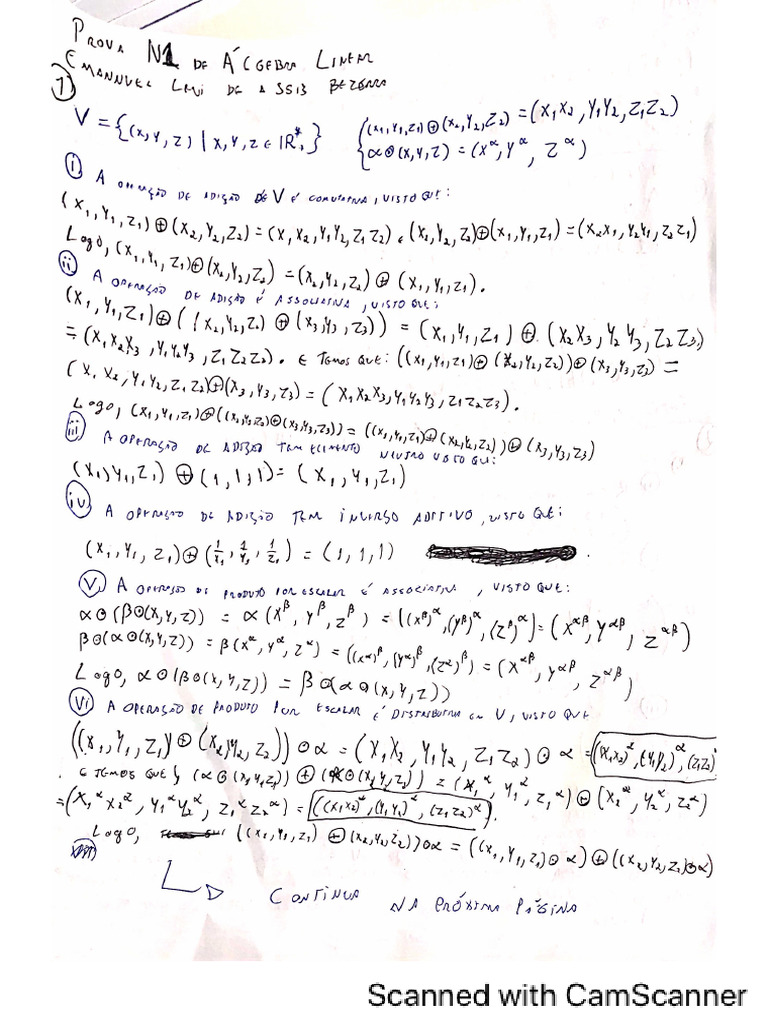 PROVA N1 DE ÁLGEBRA LINEAR
EMANNUEL LEVI DE ASSIS BEZERRA
1)
V = {(x,y,z) | x,y,z ∈ ℝ*₊} {(x₁,y₁,z₁)⊕(x₂,y₂,z₂) = (x₁x₂, y₁y₂, z₁z₂)
{α⊙(x,y,z) = (x^α, y^α, z^α)
i) A OPERAÇÃO DE ADIÇÃO DE V É COMUTATIVA, VISTO QUE:
(x₁,y₁,z₁)⊕(x₂,y₂,z₂) = (x₁x₂,y₁y₂,z₁z₂) e (x₂,y₂,z₂)⊕(x₁,y₁,z₁) = (x₂x₁,y₂y₁,z₂z₁)
LOGO, (x₁,y₁,z₁)⊕(x₂,y₂,z₂) = (x₂,y₂,z₂)⊕(x₁,y₁,z₁).
ii) A OPERAÇÃO DE ADIÇÃO É ASSOCIATIVA, VISTO QUE:
(x₁,y₁,z₁)⊕((x₂,y₂,z₂)⊕(x₃,y₃,z₃)) = (x₁,y₁,z₁)⊕(x₂x₃,y₂y₃,z₂z₃)
= (x₁x₂x₃, y₁y₂y₃, z₁z₂z₃). E TEMOS QUE: ((x₁,y₁,z₁)⊕(x₂,y₂,z₂))⊕(x₃,y₃,z₃) =
(x₁x₂,y₁y₂,z₁z₂)⊕(x₃,y₃,z₃) = (x₁x₂x₃,y₁y₂y₃,z₁z₂z₃).
LOGO, (x₁,y₁,z₁)⊕((x₂,y₂,z₂)⊕(x₃,y₃,z₃)) = ((x₁,y₁,z₁)⊕(x₂,y₂,z₂))⊕(x₃,y₃,z₃)
iii) A OPERAÇÃO DE ADIÇÃO TEM ELEMENTO NEUTRO VISTO QUE:
(x₁,y₁,z₁)⊕(1,1,1) = (x₁,y₁,z₁)
iv) A OPERAÇÃO DE ADIÇÃO TEM INVERSO ADITIVO, VISTO QUE:
(x₁,y₁,z₁)⊕(1/x₁, 1/y₁, 1/z₁) = (1,1,1) .
v) A OPERAÇÃO DE PRODUTO POR ESCALAR É ASSOCIATIVA, VISTO QUE:
α⊙(β⊙(x,y,z)) = α(x^β, y^β, z^β) = ((x^β)^α,(y^β)^α,(z^β)^α) = (x^αβ, y^αβ, z^αβ)
β⊙(α⊙(x,y,z)) = β(x^α, y^α, z^α) = ((x^α)^β,(y^α)^β,(z^α)^β) = (x^αβ, y^αβ, z^αβ)
LOGO, α⊙(β⊙(x,y,z)) = β⊙(α⊙(x,y,z))
vi) A OPERAÇÃO DE PRODUTO POR ESCALAR É DISTRIBUTIVA EM V, VISTO QUE
((x₁,y₁,z₁)⊕(x₂,y₂,z₂))⊙α = (x₁x₂,y₁y₂,z₁z₂)⊙α = ((x₁x₂)^α,(y₁y₂)^α,(z₁z₂)^α
E TEMOS QUE (α⊙(x₁,y₁,z₁))⊕(α⊙(x₂,y₂,z₂)) = (x₁^α, y₁^α, z₁^α)⊕(x₂^α, y₂^α, z₂^α)
= (x₁^αx₂^α, y₁^αy₂^α, z₁^αz₂^α) = ((x₁x₂)^α,(y₁y₂)^α,(z₁z₂)^α).
LOGO, ((x₁,y₁,z₁)⊕(x₂,y₂,z₂))⊙α = ((x₁,y₁,z₁)⊙α)⊕((x₂,y₂,z₂)⊙α)
CONTINUA NA PRÓXIMA PÁGINA
Scanned with CamScanner